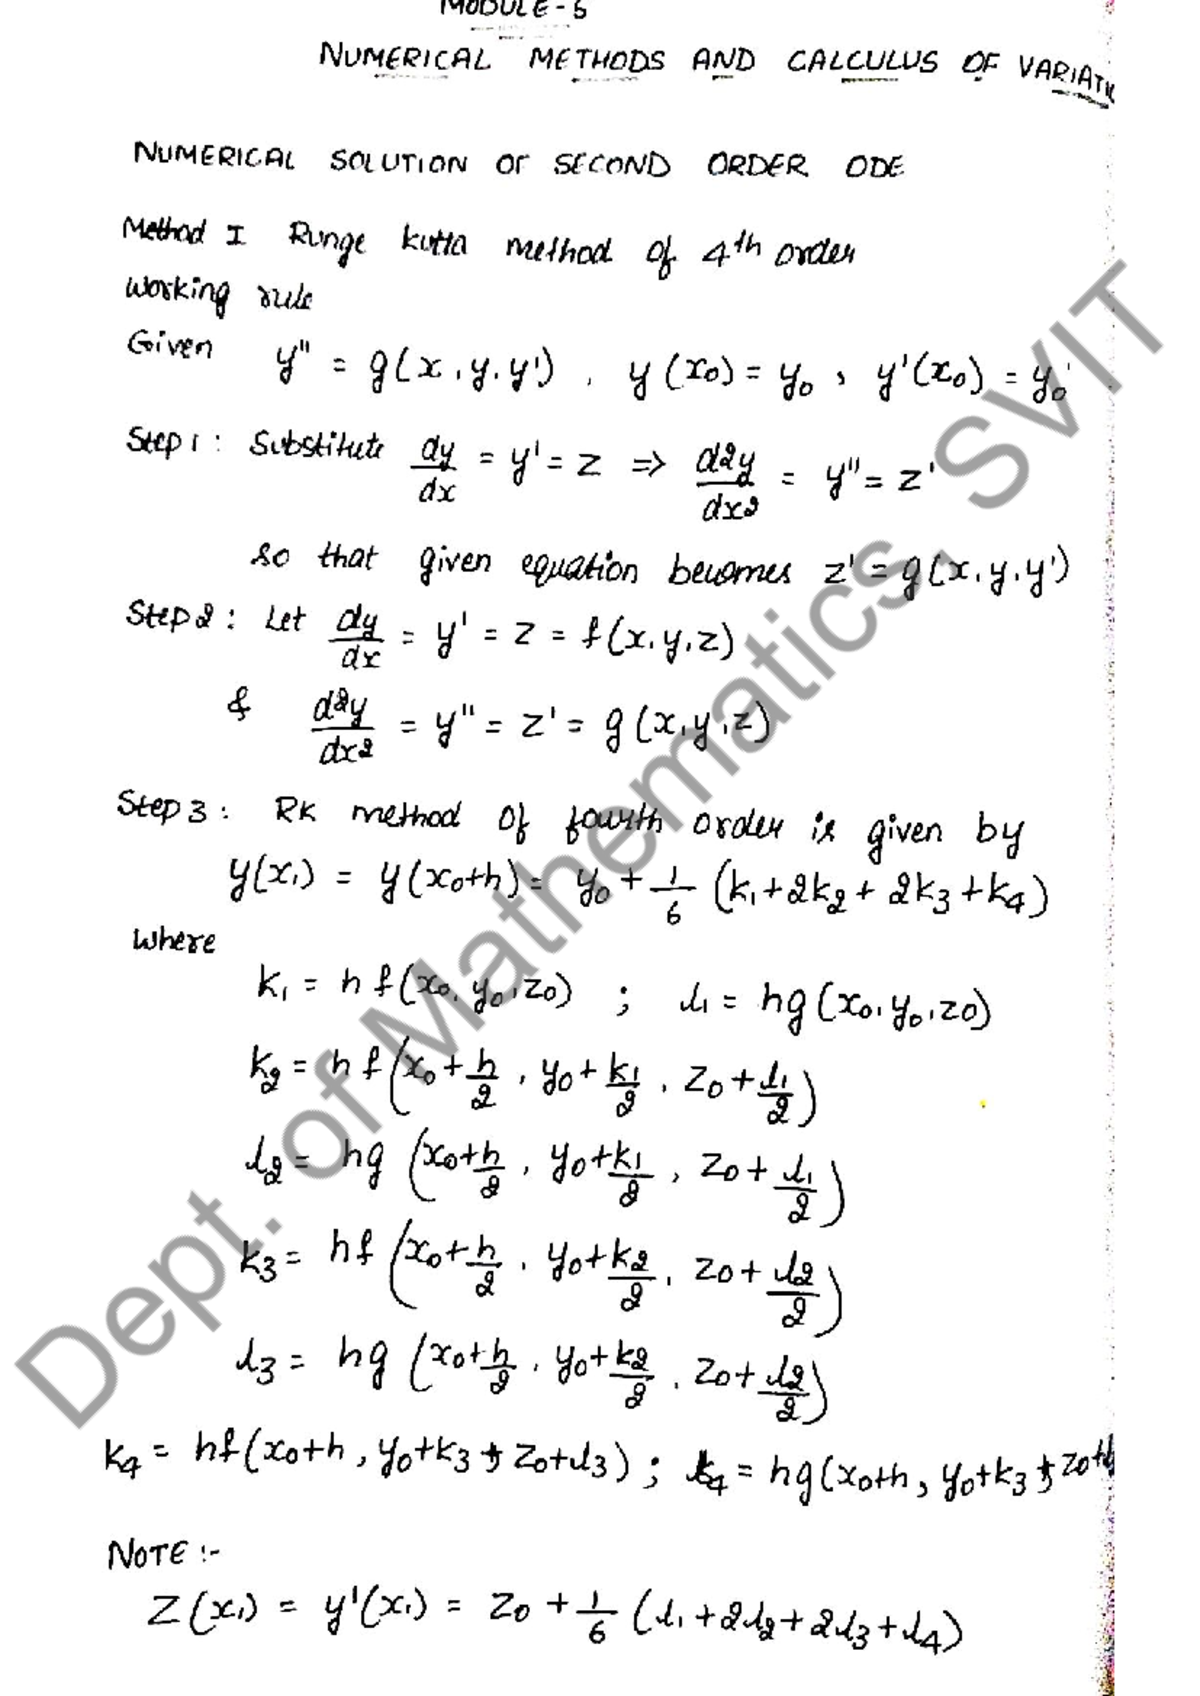 MODULE-5
NUMERICAL METHODS AND CALCULUS OF
NUMERICAL SOLUTION OF SECOND ORDER ODE
Method I Runge kutta method of 4th order
Working rule
Given y'' = g(x, y, y'), y(x0) = y0, y'(x0) = y0'
Step 1: Substitute dy/dx = y' = z ⇒ d2y/dx2 = y'' = z'
so that given equation becomes z' = g(x, y, y')
Step 2: Let dy/dx = y' = z = f(x, y, z)
& d2y/dx2 = y'' = z' = g(x, y, z)
Step 3: RK method of fourth order is given by
y(x1) = y(x0+h) = y0 + 1/6 (k1 + 2k2 + 2k3 + k4)
Where
k1 = h f(x0, y0, z0) ; l1 = hg(x0, y0, z0)
k2 = h f(x0 + h/2, y0 + k1/2, z0 + l1/2)
l2 = hg (x0 + h/2, y0 + k1/2, z0 + l1/2)
k3 = hf (x0 + h/2, y0 + k2/2, z0 + l2/2)
l3 = hg (x0 + h/2, y0 + k2/2, z0 + l2/2)
k4 = hf(x0+h, y0+k3, z0+l3) ; l4 = hg(x0+h, y0+k3, z0+l
NOTE :-
z(x1) = y'(x1) = z0 + 1/6 (l1 + 2l2 + 2l3 + l4)
Dept. of Mathematics, SVIT